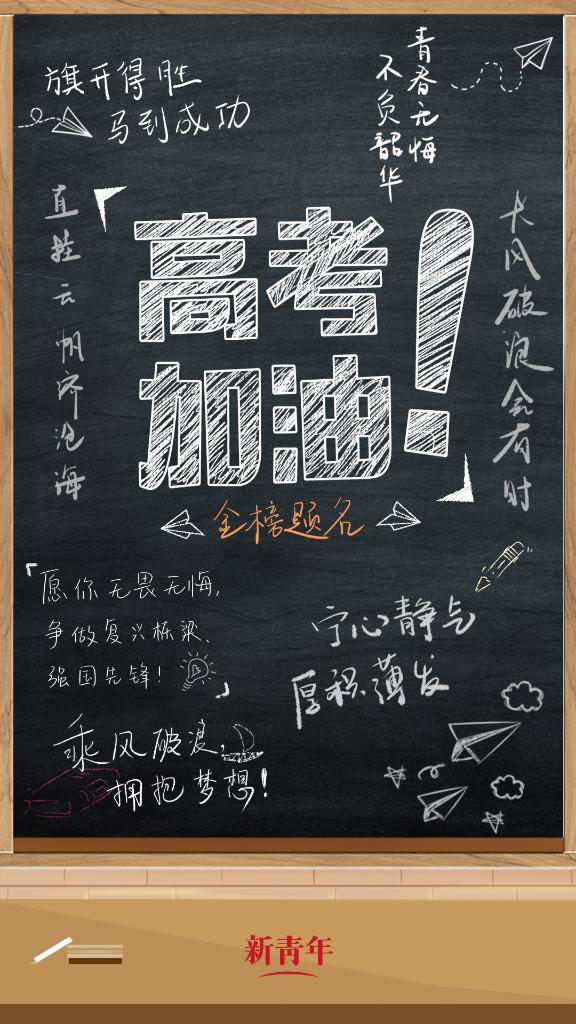 旗开得胜
马到成功
青春无悔
不负韶华
长风破浪会有时
直挂云帆济沧海
高考
加油!
金榜题名
愿你无畏无悔,
争做复兴栋梁、
强国先锋!
宁心静气
厚积薄发
乘风破浪,
拥抱梦想!
新青年